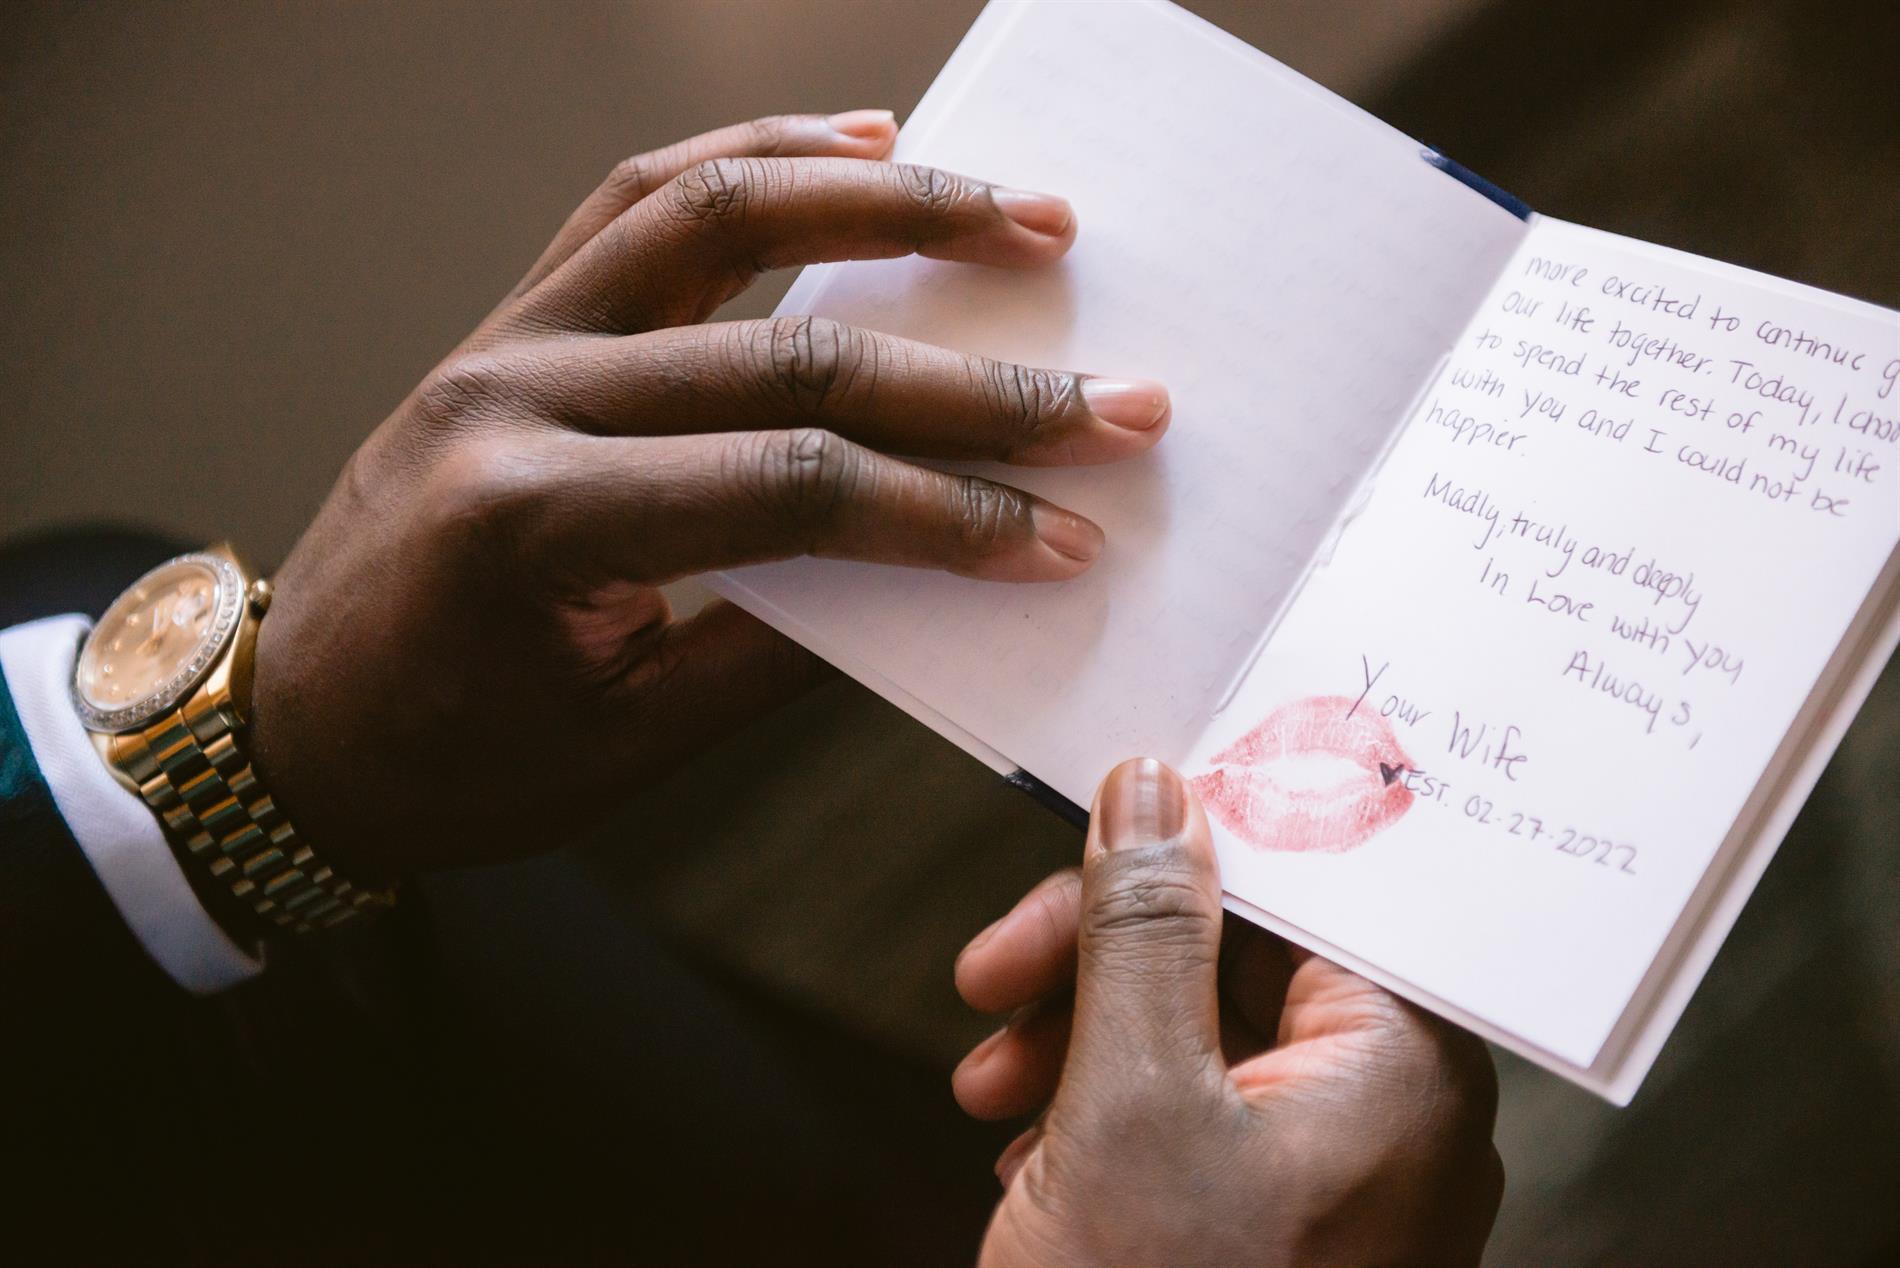 more excited to continue g
our life together. Today, I choo
to spend the rest of my life
with you and I could not be
happier.
Madly, truly and deeply
in Love with you
Always,
Your Wife
♥EST. 02-27-2022